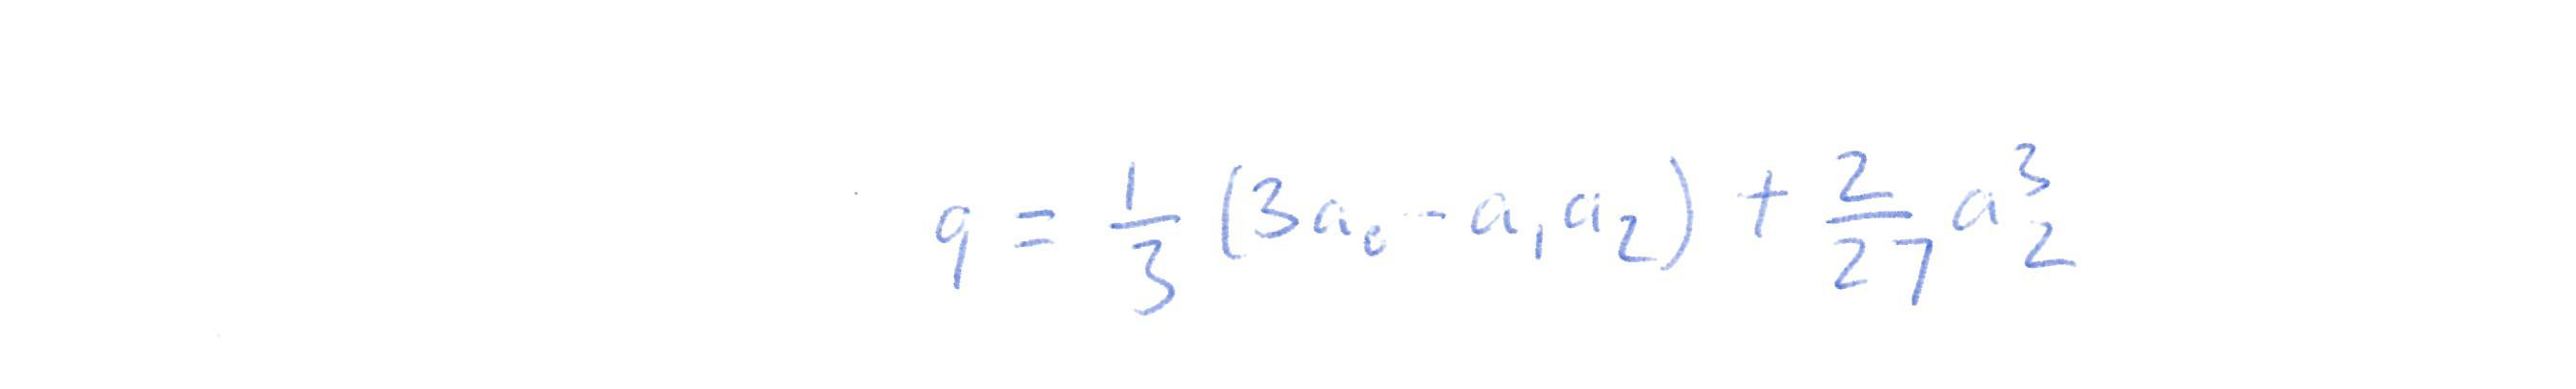 q = \frac{1}{3} (3a_0 - a_1 a_2) + \frac{2}{27} a_2^3